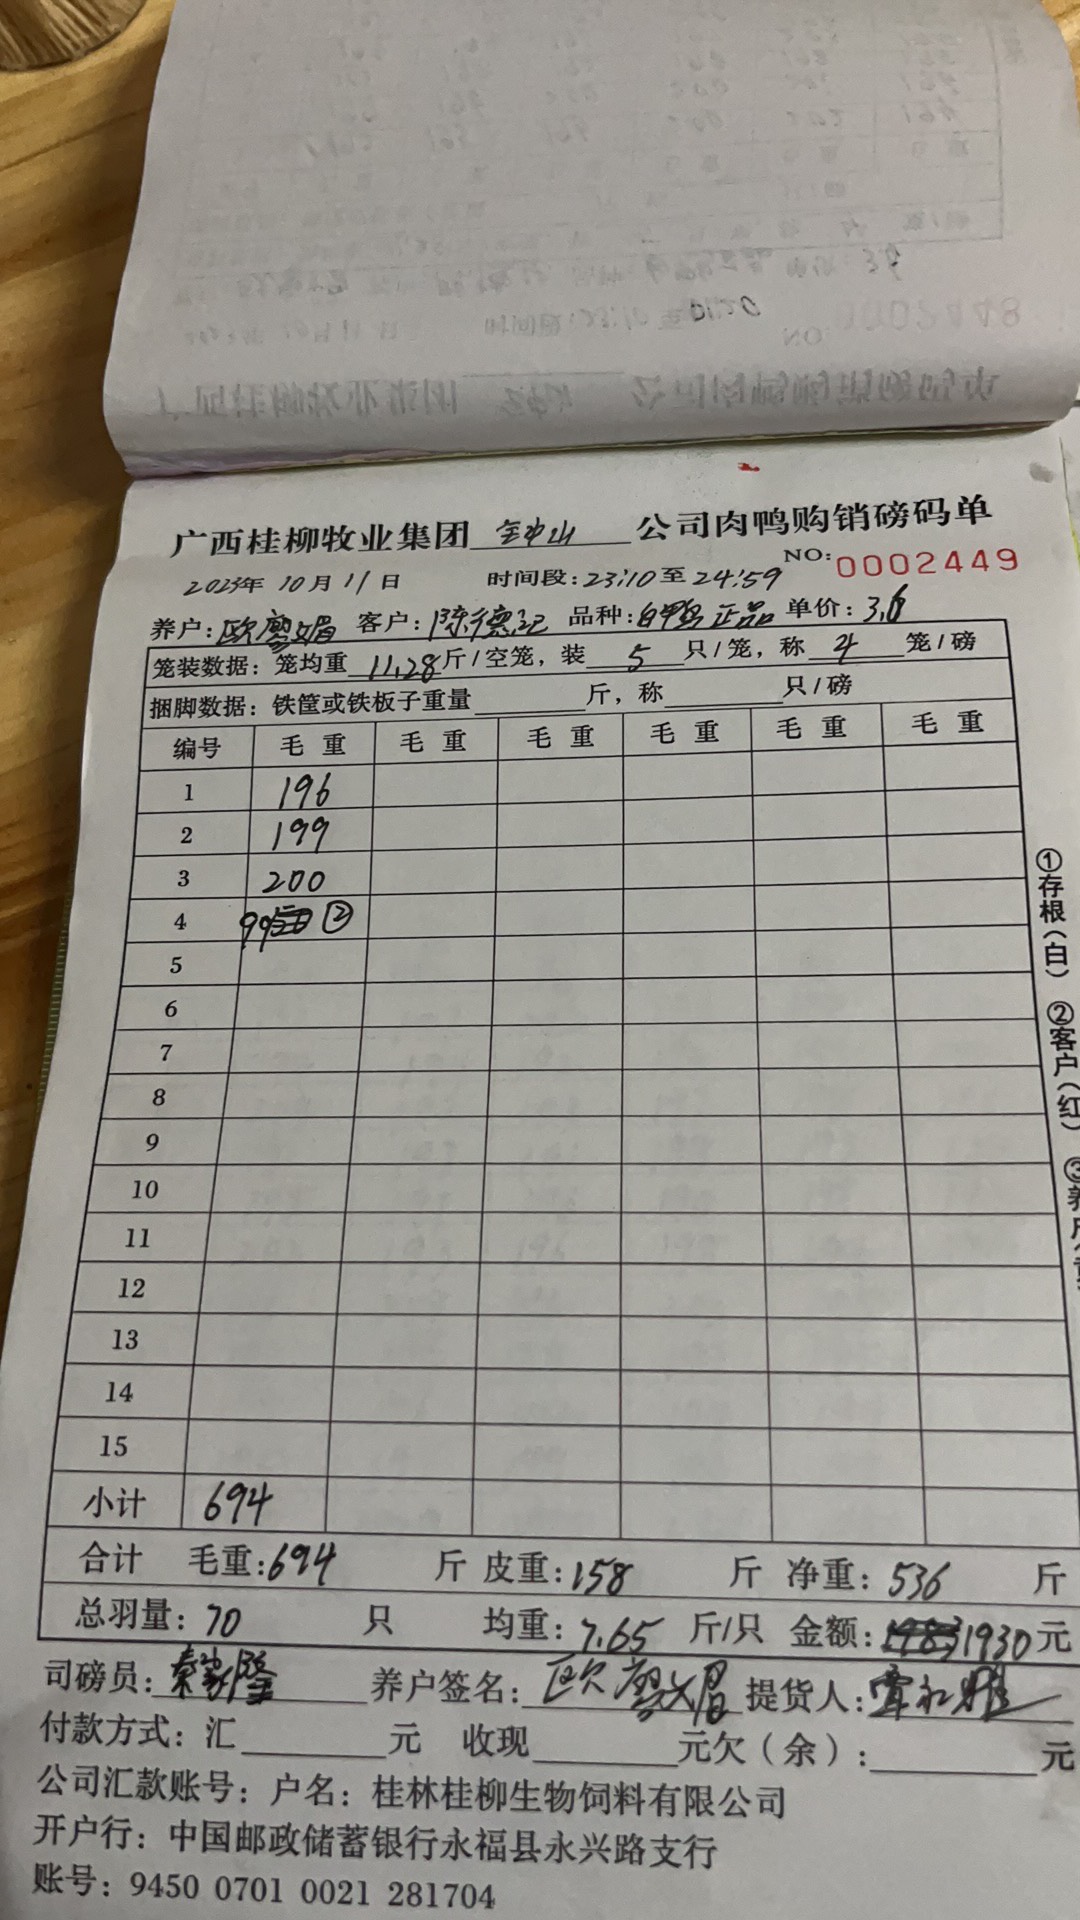 0002448
广西桂柳牧业集团 金中山 公司肉鸭购销磅码单
2023年 10月 11日 时间段:23:10至24:59 NO:0002449
养户:欧廖媚 客户:陈德记 品种:白鸭正品 单价:3.6
笼装数据:笼均重 11.28斤/空笼,装 5 只/笼,称 4 笼/磅
捆脚数据:铁筐或铁板子重量 斤,称 只/磅
编号 毛重 毛重 毛重 毛重 毛重 毛重
1 196
2 199
3 200
4 99 ②
5
6
7
8
9
10
11
12
13
14
15
小计 694
合计 毛重:694 斤 皮重:158 斤 净重:536 斤
总羽量:70 只 均重:7.65 斤/只 金额:1930元
司磅员: 养户签名:欧廖媚 提货人:
付款方式:汇 元 收现 元欠(余): 元
公司汇款账号:户名:桂林桂柳生物饲料有限公司
开户行:中国邮政储蓄银行永福县永兴路支行
账号:9450 0701 0021 281704
①存根(白) ②客户(红) ③养户